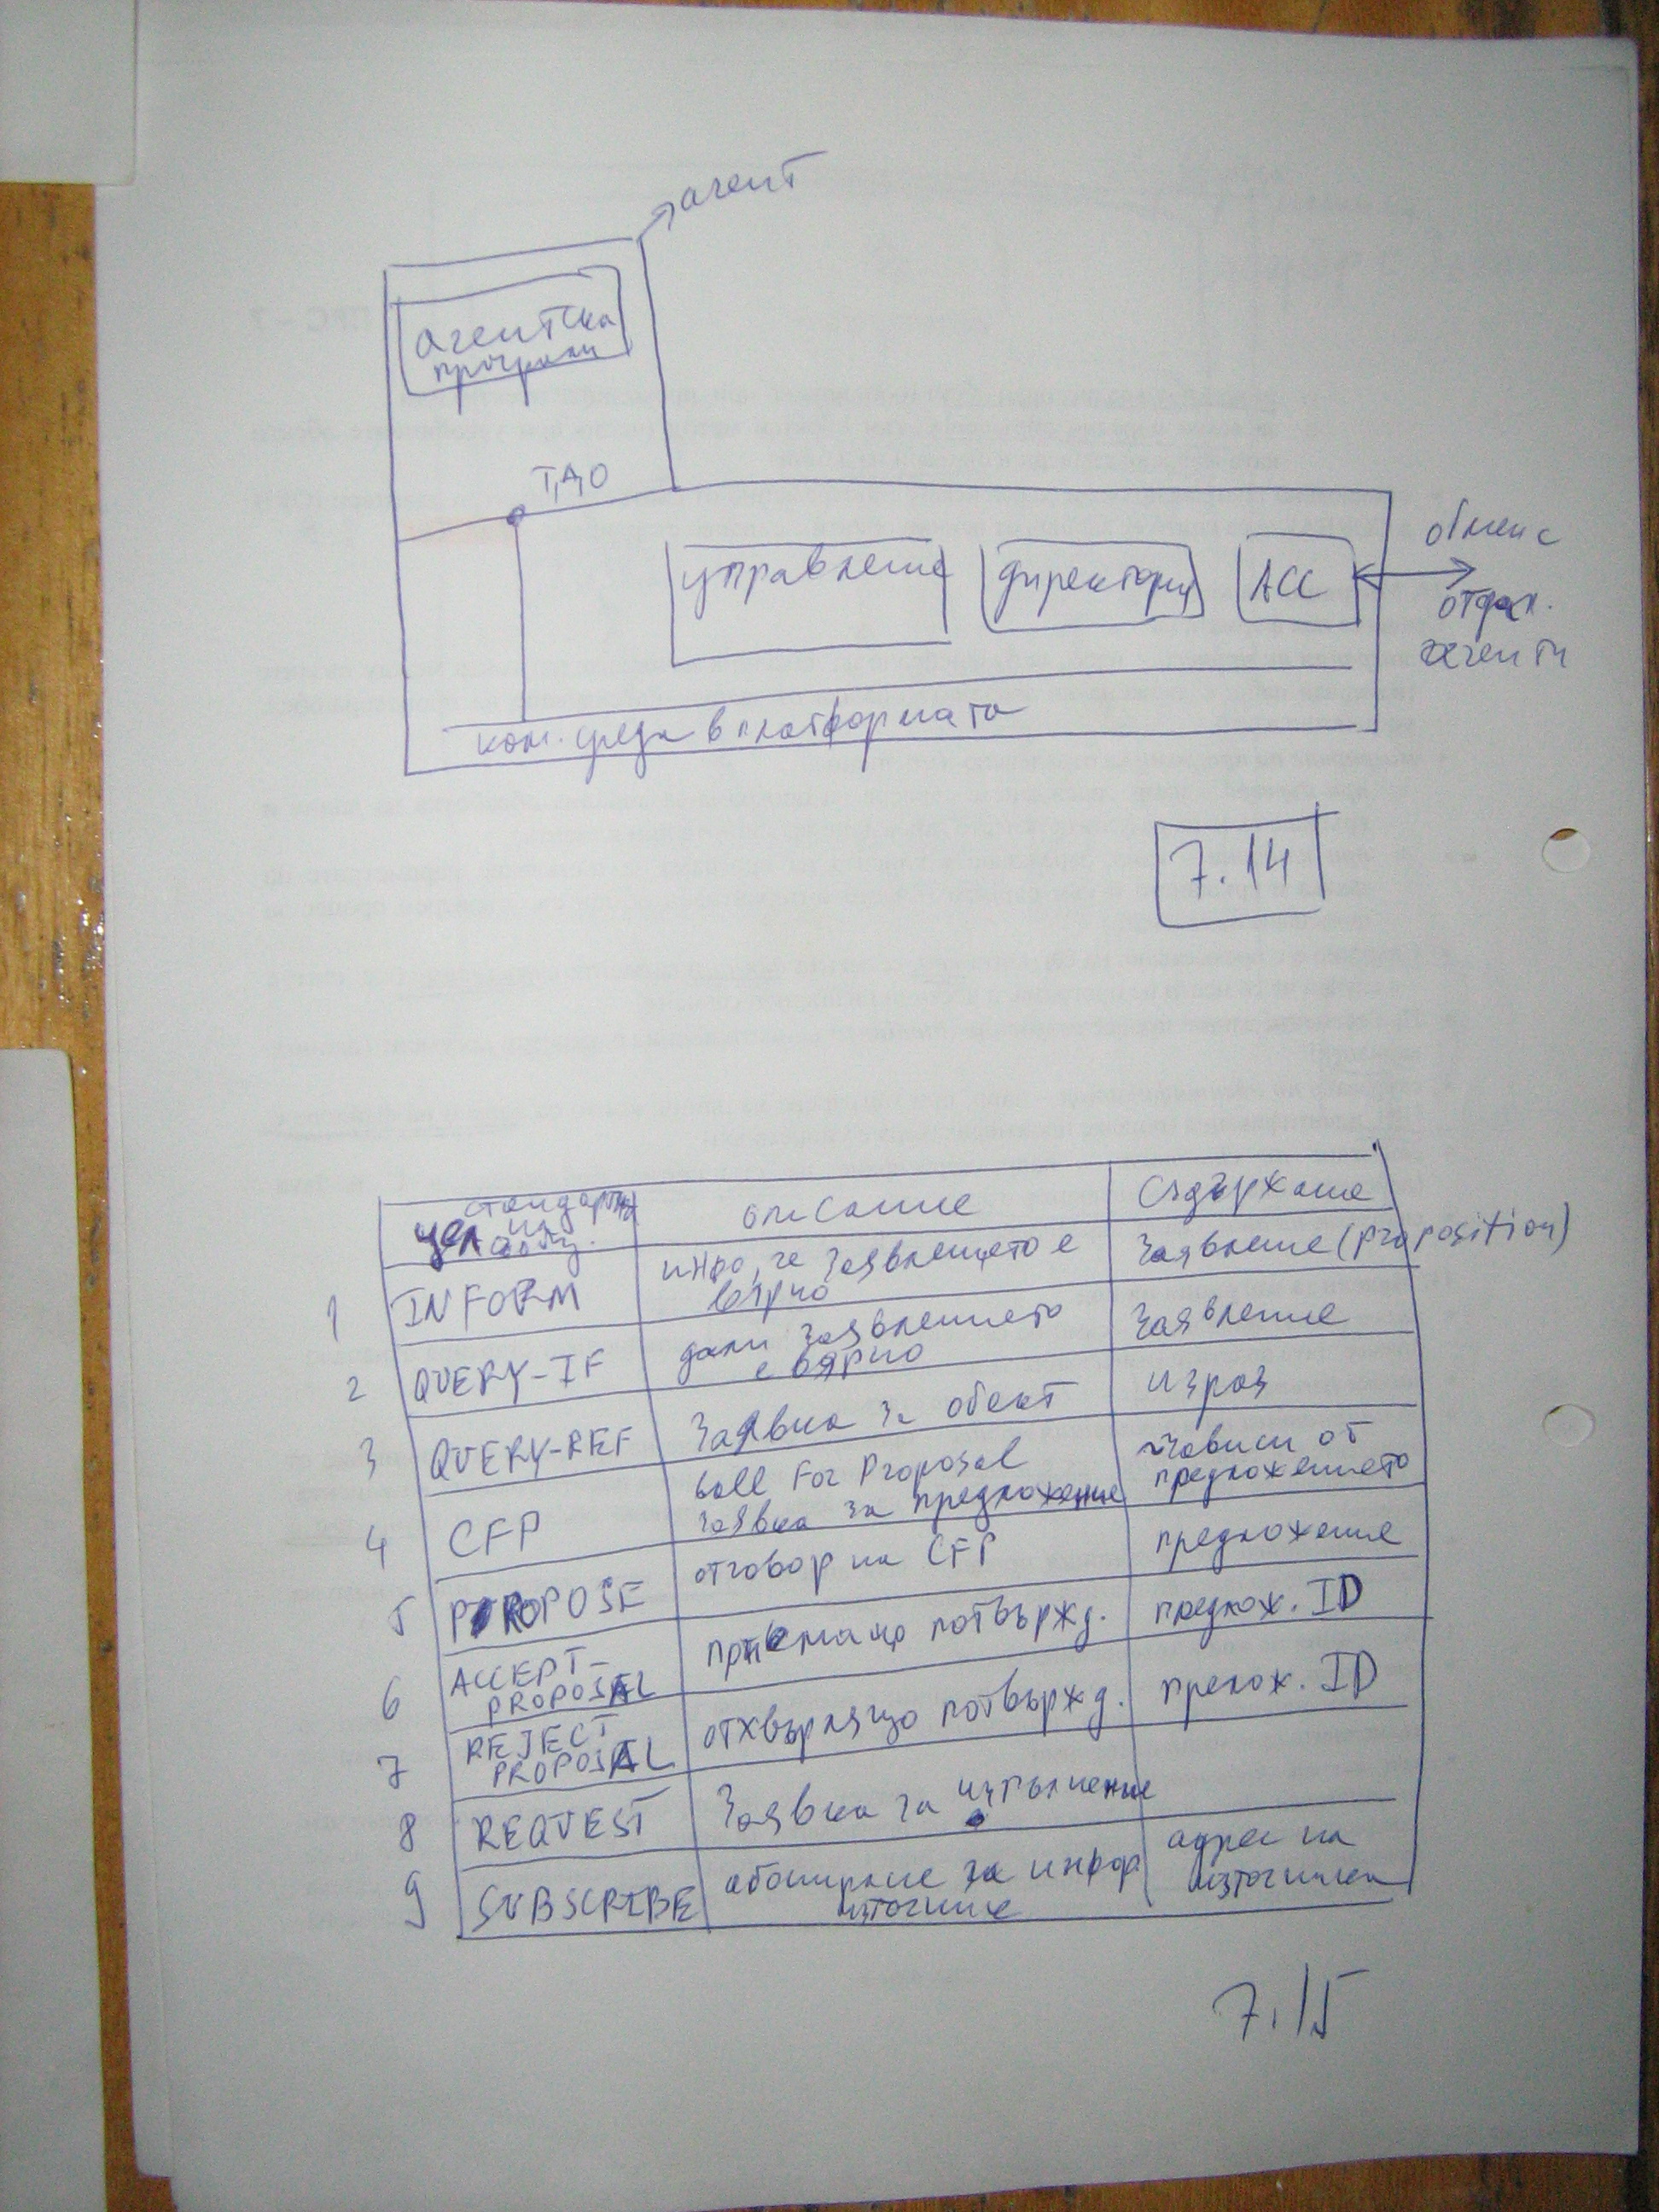 агент
агентска
програма
Т,Д,О
управление
директория
ACC
обмен с
отдал.
агенти
ком. среда в платформата
7.14
стандартни
цел на
съобщ.
описание
съдържание
1
INFORM
инфо, че заявлението е
вярно
заявление (proposition)
2
QUERY-IF
дали заявлението
е вярно
заявление
3
QUERY-REF
заявка за обект
израз
4
CFP
Call For Proposal
заявка за предложение
зависи от
предложението
5
PROPOSE
отговор на CFP
предложение
6
ACCEPT-
PROPOSAL
приемащо потвържд.
предлож. ID
7
REJECT
PROPOSAL
отхвърлящо потвържд.
прелож. ID
8
REQUEST
заявка за изпълнение
9
SUBSCRIBE
абониране за инфор
източник
адрес на
източника
7.15